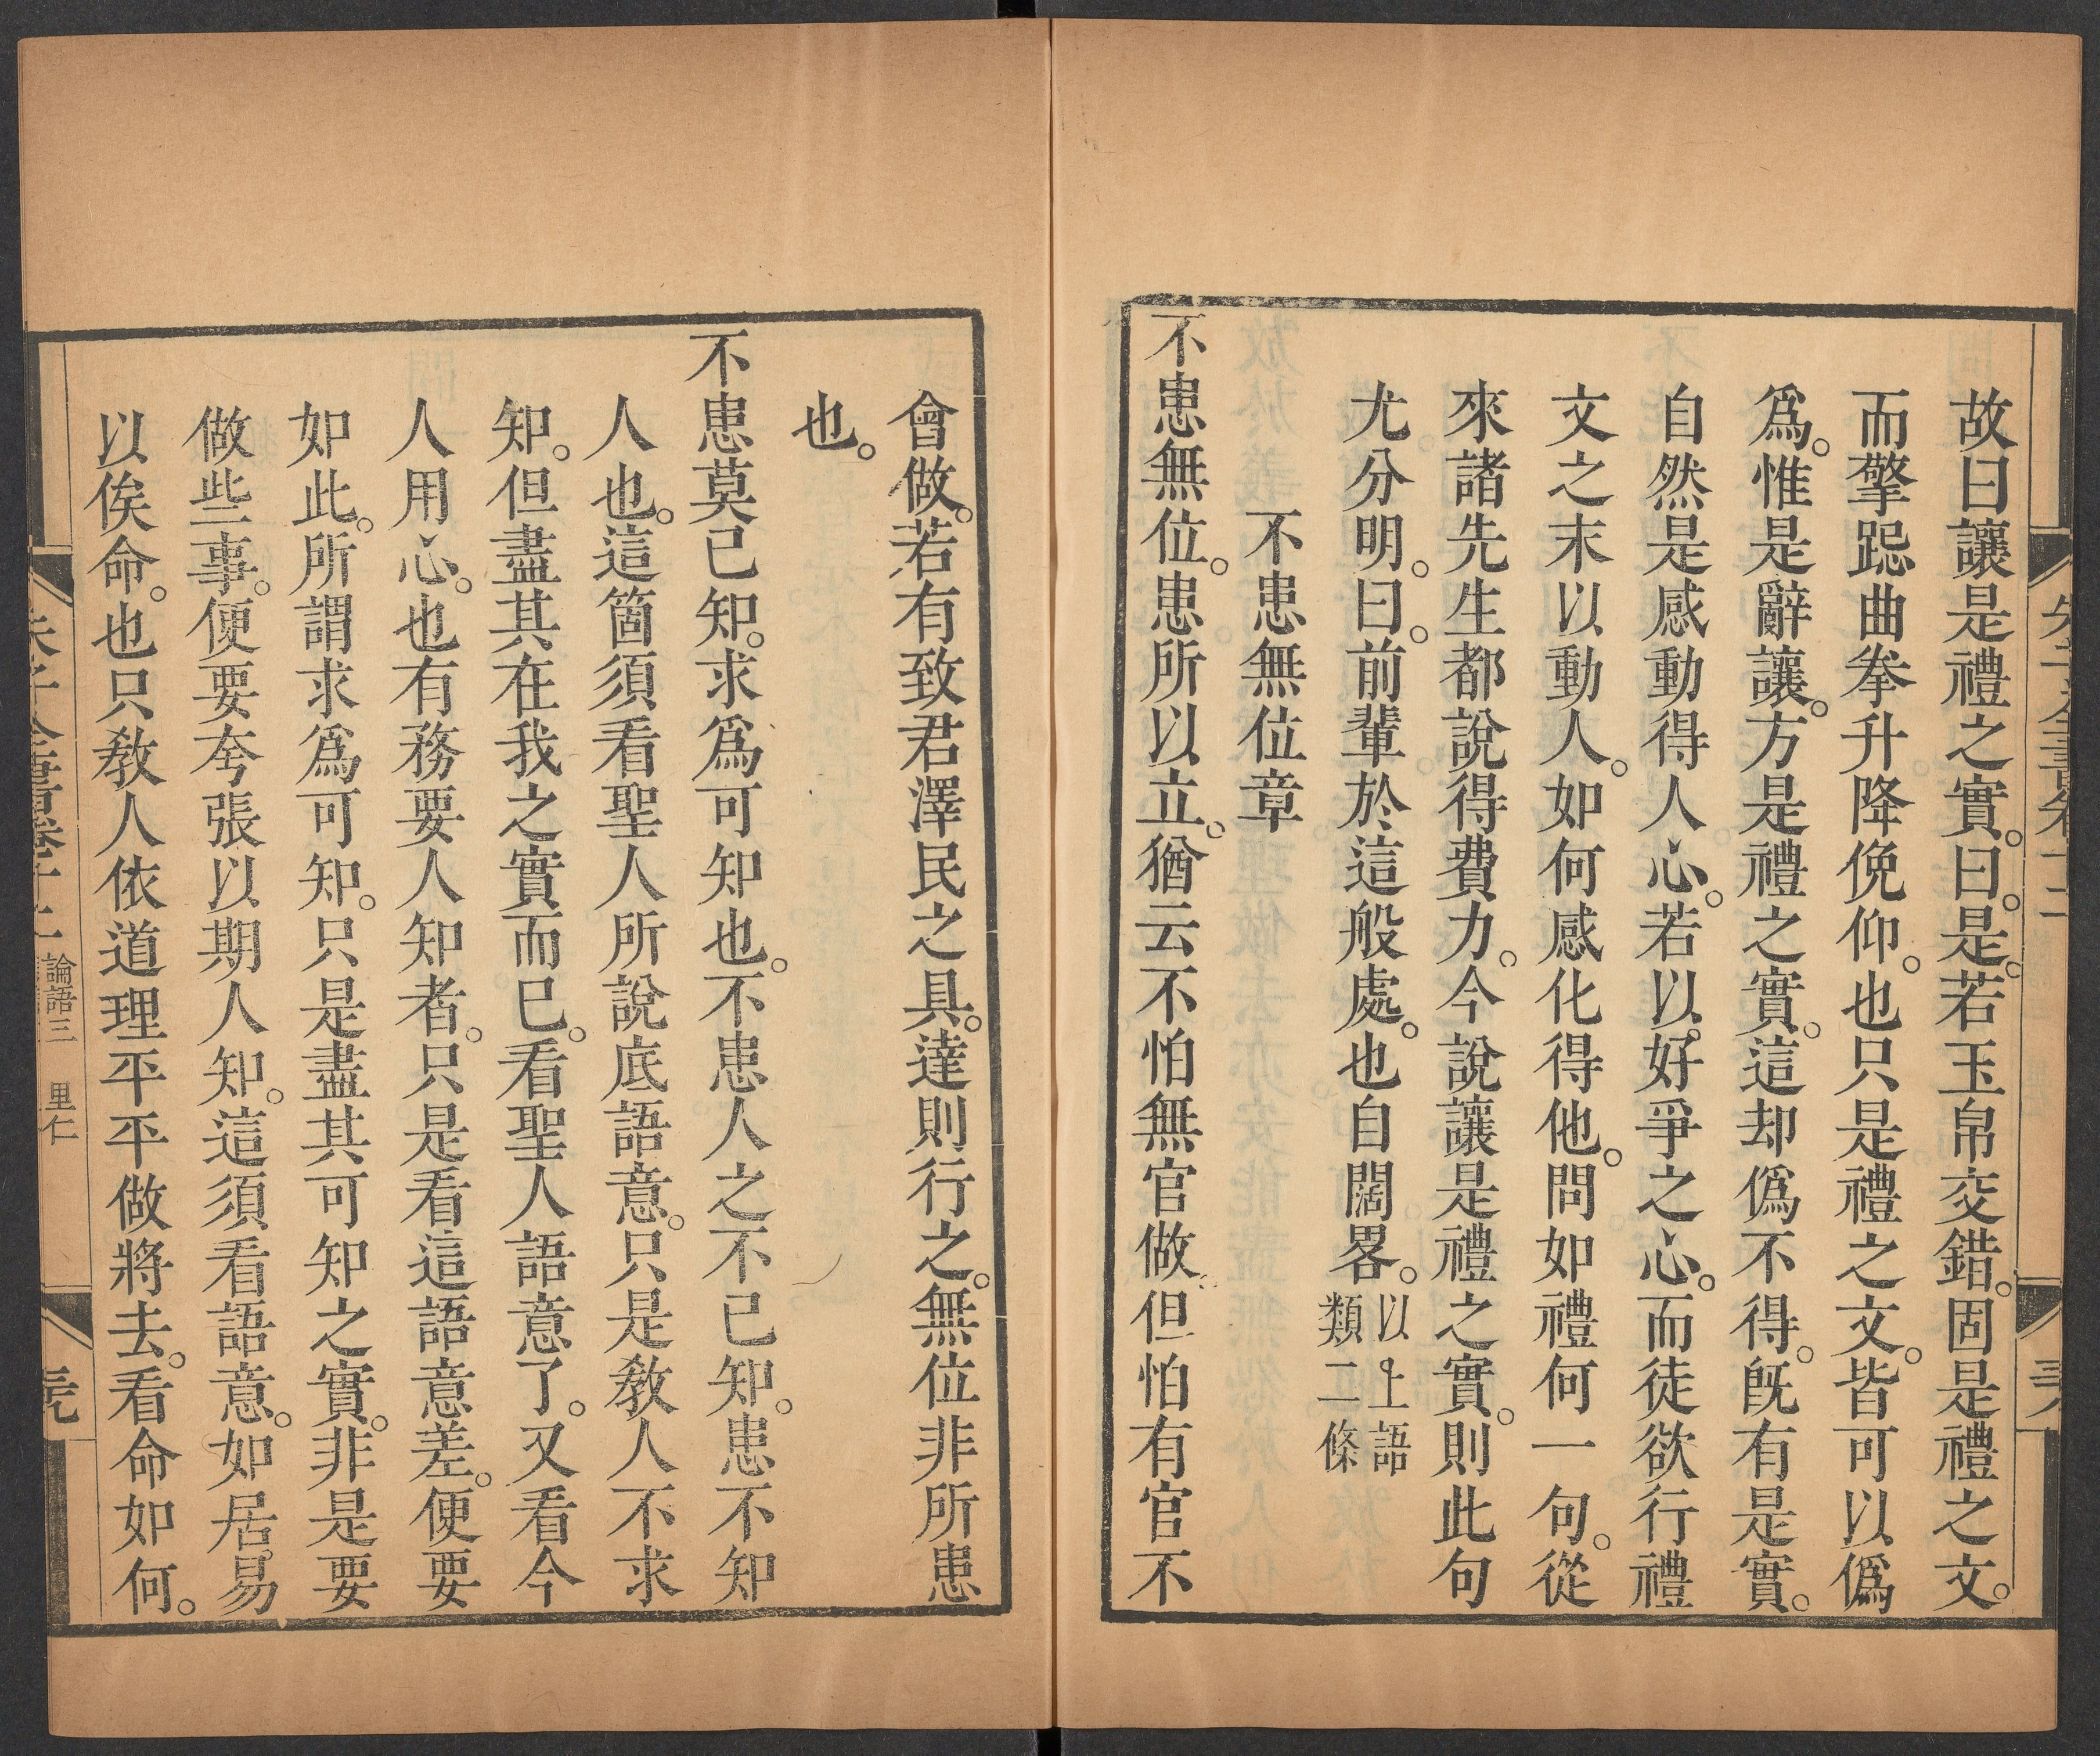 故曰讓是禮之實。曰。是。若玉帛交錯。固是禮之文。
而擎跽曲拳升降俛仰。也只是禮之文。皆可以僞
爲。惟是辭讓。方是禮之實。這却僞不得。旣有是實。
自然是感動得人心。若以。好爭之心。而徒欲行禮
文之末以動人。如何感化得他。問如禮何一句。從
來諸先生都說得費力。今說讓是禮之實。則此句
尤分明。曰。前輩於這般處。也自闊畧。以上語類二條
不患無位章
不患無位。患所以立。猶云不怕無官做但怕有官不
會做。若有致君澤民之具。達則行之。無位非所患
也。
不患莫己知。求爲可知也。不患人之不己知。患不知
人也。這箇須看聖人所說底語意。只是敎人不求
知。但盡其在我之實而已。看聖人語意了。又看今
人用心。也有務要人知者。只是看這語意差。便要
如此。所謂求爲可知。只是盡其可知之實。非是要
做些事。便要夸張以期人知。這須看語意。如居易
以俟命。也只敎人依道理平平做將去。看命如何。
論語三 里仁